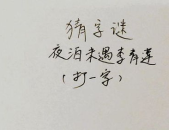 猜字谜
夜泊未遇李有莲
(打一字)